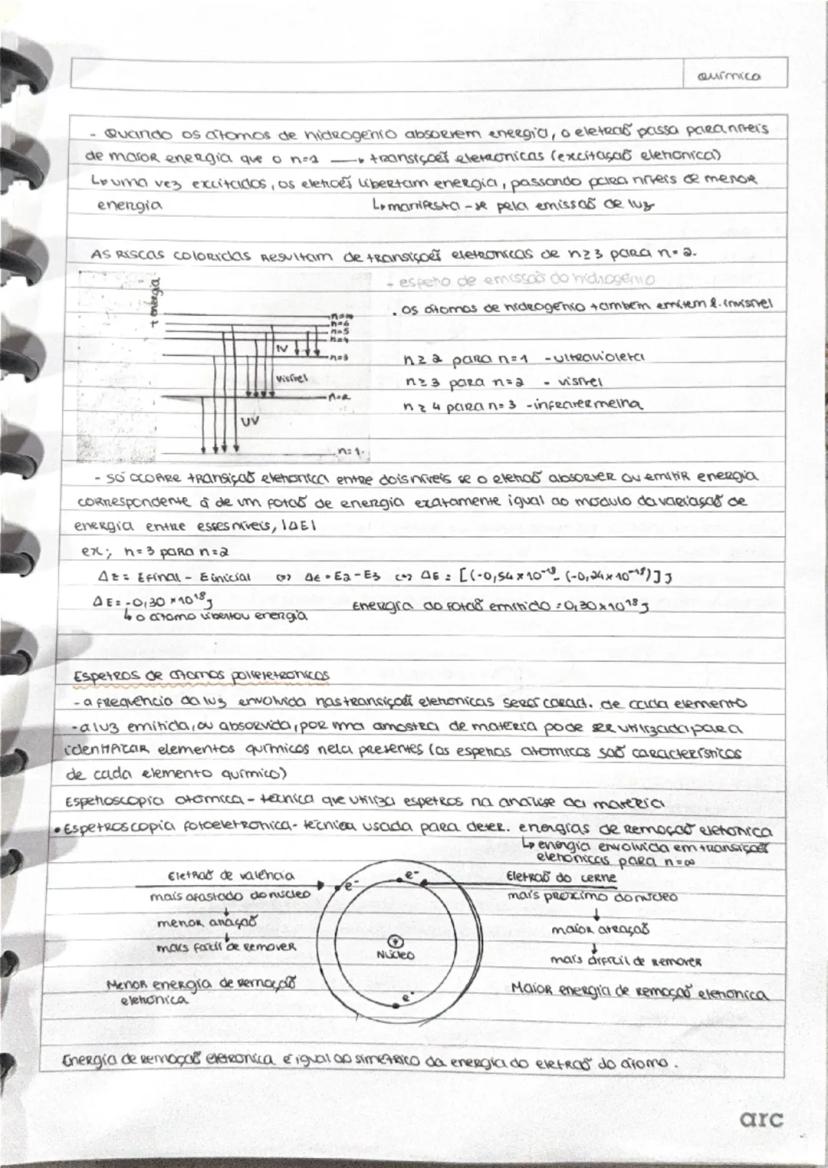 química
- Quando os átomos de hidrogénio absorvem energia, o eletrão passa para níveis
de maior energia que o n=1 → transições eletrónicas (excitação eletrónica)
↳ uma vez excitados, os eletrões libertam energia, passando para níveis de menor
energia ↳ manifesta-se pela emissão de luz
As riscas coloridas resultam de transições eletrónicas de n≥3 para n=2.
- espetro de emissão do hidrogénio
+ energia
• Os átomos de hidrogénio também emitem l. invisível
n=∞
n=6
n=5
n=4
IV
n=3
visível
n=2
UV
n=1
n≥2 para n=1 - ultravioleta
n≥3 para n=2 - visível
n≥4 para n=3 - infravermelha
- Só ocorre transição eletrónica entre dois níveis se o eletrão absorver ou emitir energia
correspondente à de um fotão de energia exatamente igual ao módulo da variação de
energia entre esses níveis, |ΔE|
ex; n=3 para n=2
ΔE = Efinal - Einicial ⇔ ΔE = E2 - E3 ⇔ ΔE = [(-0,54×10⁻¹⁸ - (-0,24×10⁻¹⁸)] J
ΔE = -0,30×10¹⁸ J Energia do fotão emitido = 0,30×10¹⁸ J
↳ o átomo libertou energia
Espetros de átomos polieletrónicos
- a frequência da luz envolvida nas transições eletrónicas será caract. de cada elemento
- a luz emitida, ou absorvida, por uma amostra de matéria pode ser utilizada para
identificar elementos químicos nela presentes (os espetros atómicos são característicos
de cada elemento químico)
Espetroscopia atómica - técnica que utiliza espetros na análise da matéria
• Espetroscopia fotoeletrónica - técnica usada para deter. energias de remoção eletrónica
↳ energia envolvida em transições
eletrónicas para n=∞
Eletrão de valência
mais afastado do núcleo
↓
menor atração
↓
mais fácil de remover
Menor energia de remoção
eletrónica
e⁻
e⁻
+
Núcleo
e⁻
Eletrão do cerne
mais próximo do núcleo
↓
maior atração
↓
mais difícil de remover
Maior energia de remoção eletrónica
Energia de remoção eletrónica é igual ao simétrico da energia do eletrão do átomo.
arc